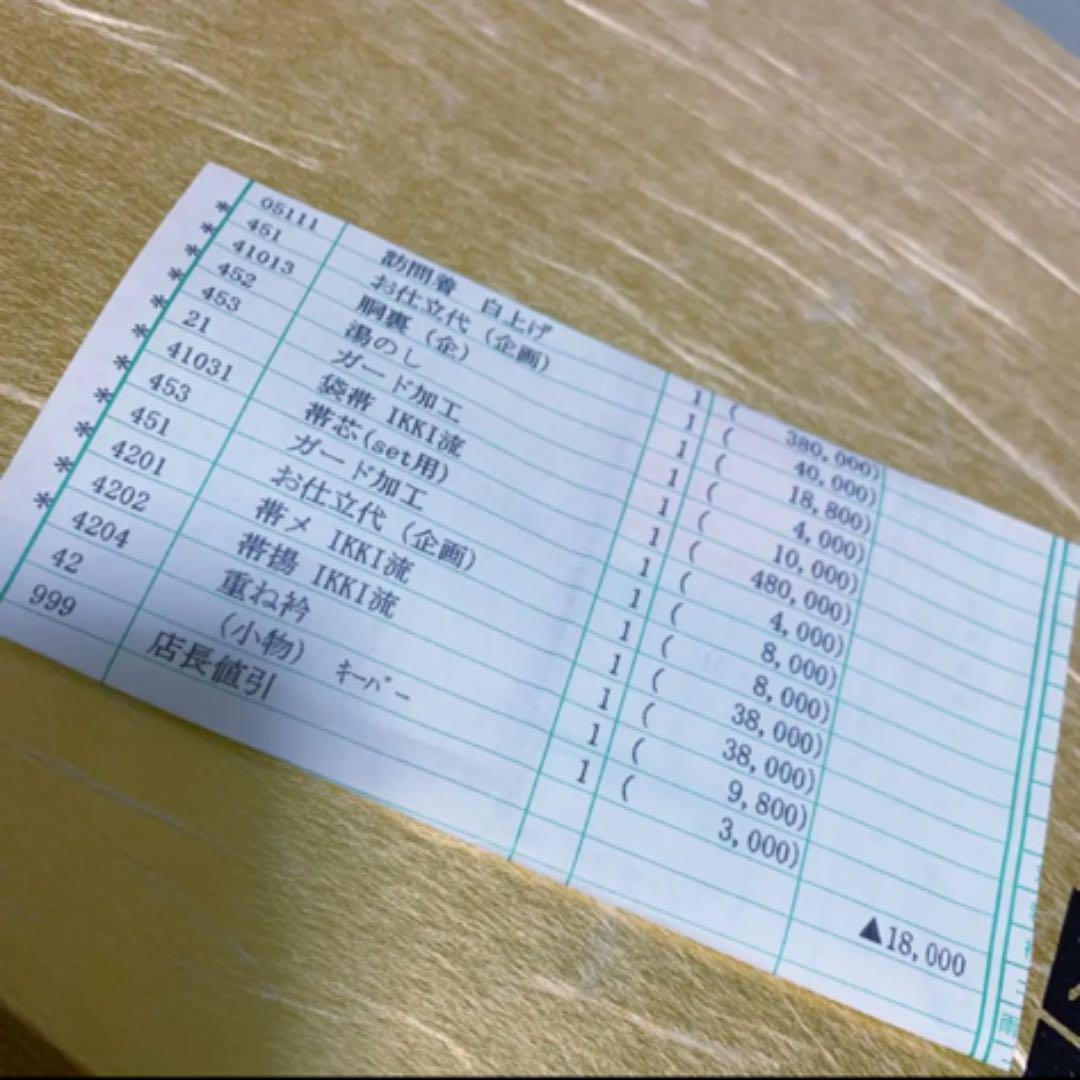 * 05111 訪問着 白上げ 1 ( 380,000)
* 451 お仕立代 (企画) 1 ( 40,000)
* 41013 胴裏 (企) 1 ( 18,800)
* 452 湯のし 1 ( 4,000)
* 453 ガード加工 1 ( 10,000)
* 21 袋帯 IKKI流 1 ( 480,000)
* 41031 帯芯(set用) 1 ( 4,000)
* 453 ガード加工 1 ( 8,000)
* 451 お仕立代 (企画) 1 ( 8,000)
* 4201 帯〆 IKKI流 1 ( 38,000)
* 4202 帯揚 IKKI流 1 ( 38,000)
4204 重ね衿 1 ( 9,800)
42 (小物) キーパー 1 ( 3,000)
999 店長値引 ▲18,000